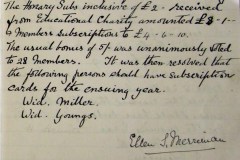 The Honary Subs inclusive of £2 - received
from Educational Charity amounted £8 - 1 -
Members Subscriptions to £4 - 6 - 10.
The usual bonus of 5/ was unanimously voted
to 28 Members. It was then resolved that
the following persons should have Subscription
cards for the ensuing year.
Wid. Miller.
Wid. Youngs.
Ellen S. Merriman